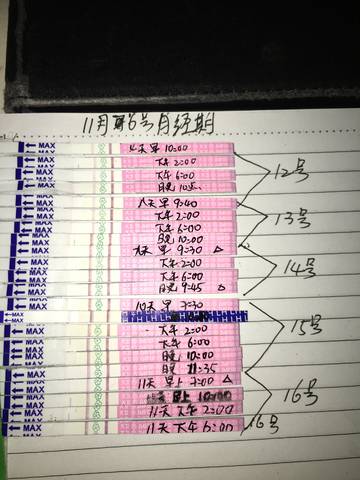 11月6号月经期
MAX 天早 10:00
MAX 下午 2:00
MAX 下午 6:00
MAX 晚
12号
MAX 八天早 9:40
MAX 下午 2:00
MAX 下午 6:00
MAX 晚 10:00
13号
MAX 9天早 9:30 △
MAX 下午 2:00
MAX 下午 6:00
MAX 晚 9:45 △
14号
MAX 10天早 7:30
MAX
MAX 下午 2:00
MAX 下午 6:00
MAX 晚 10:00
MAX 晚 11:35
15号
MAX 11天早上 7:00 △
MAX 早上 10:00
MAX 11天下午 2:00
16号
MAX 11天下午 6:00 16号